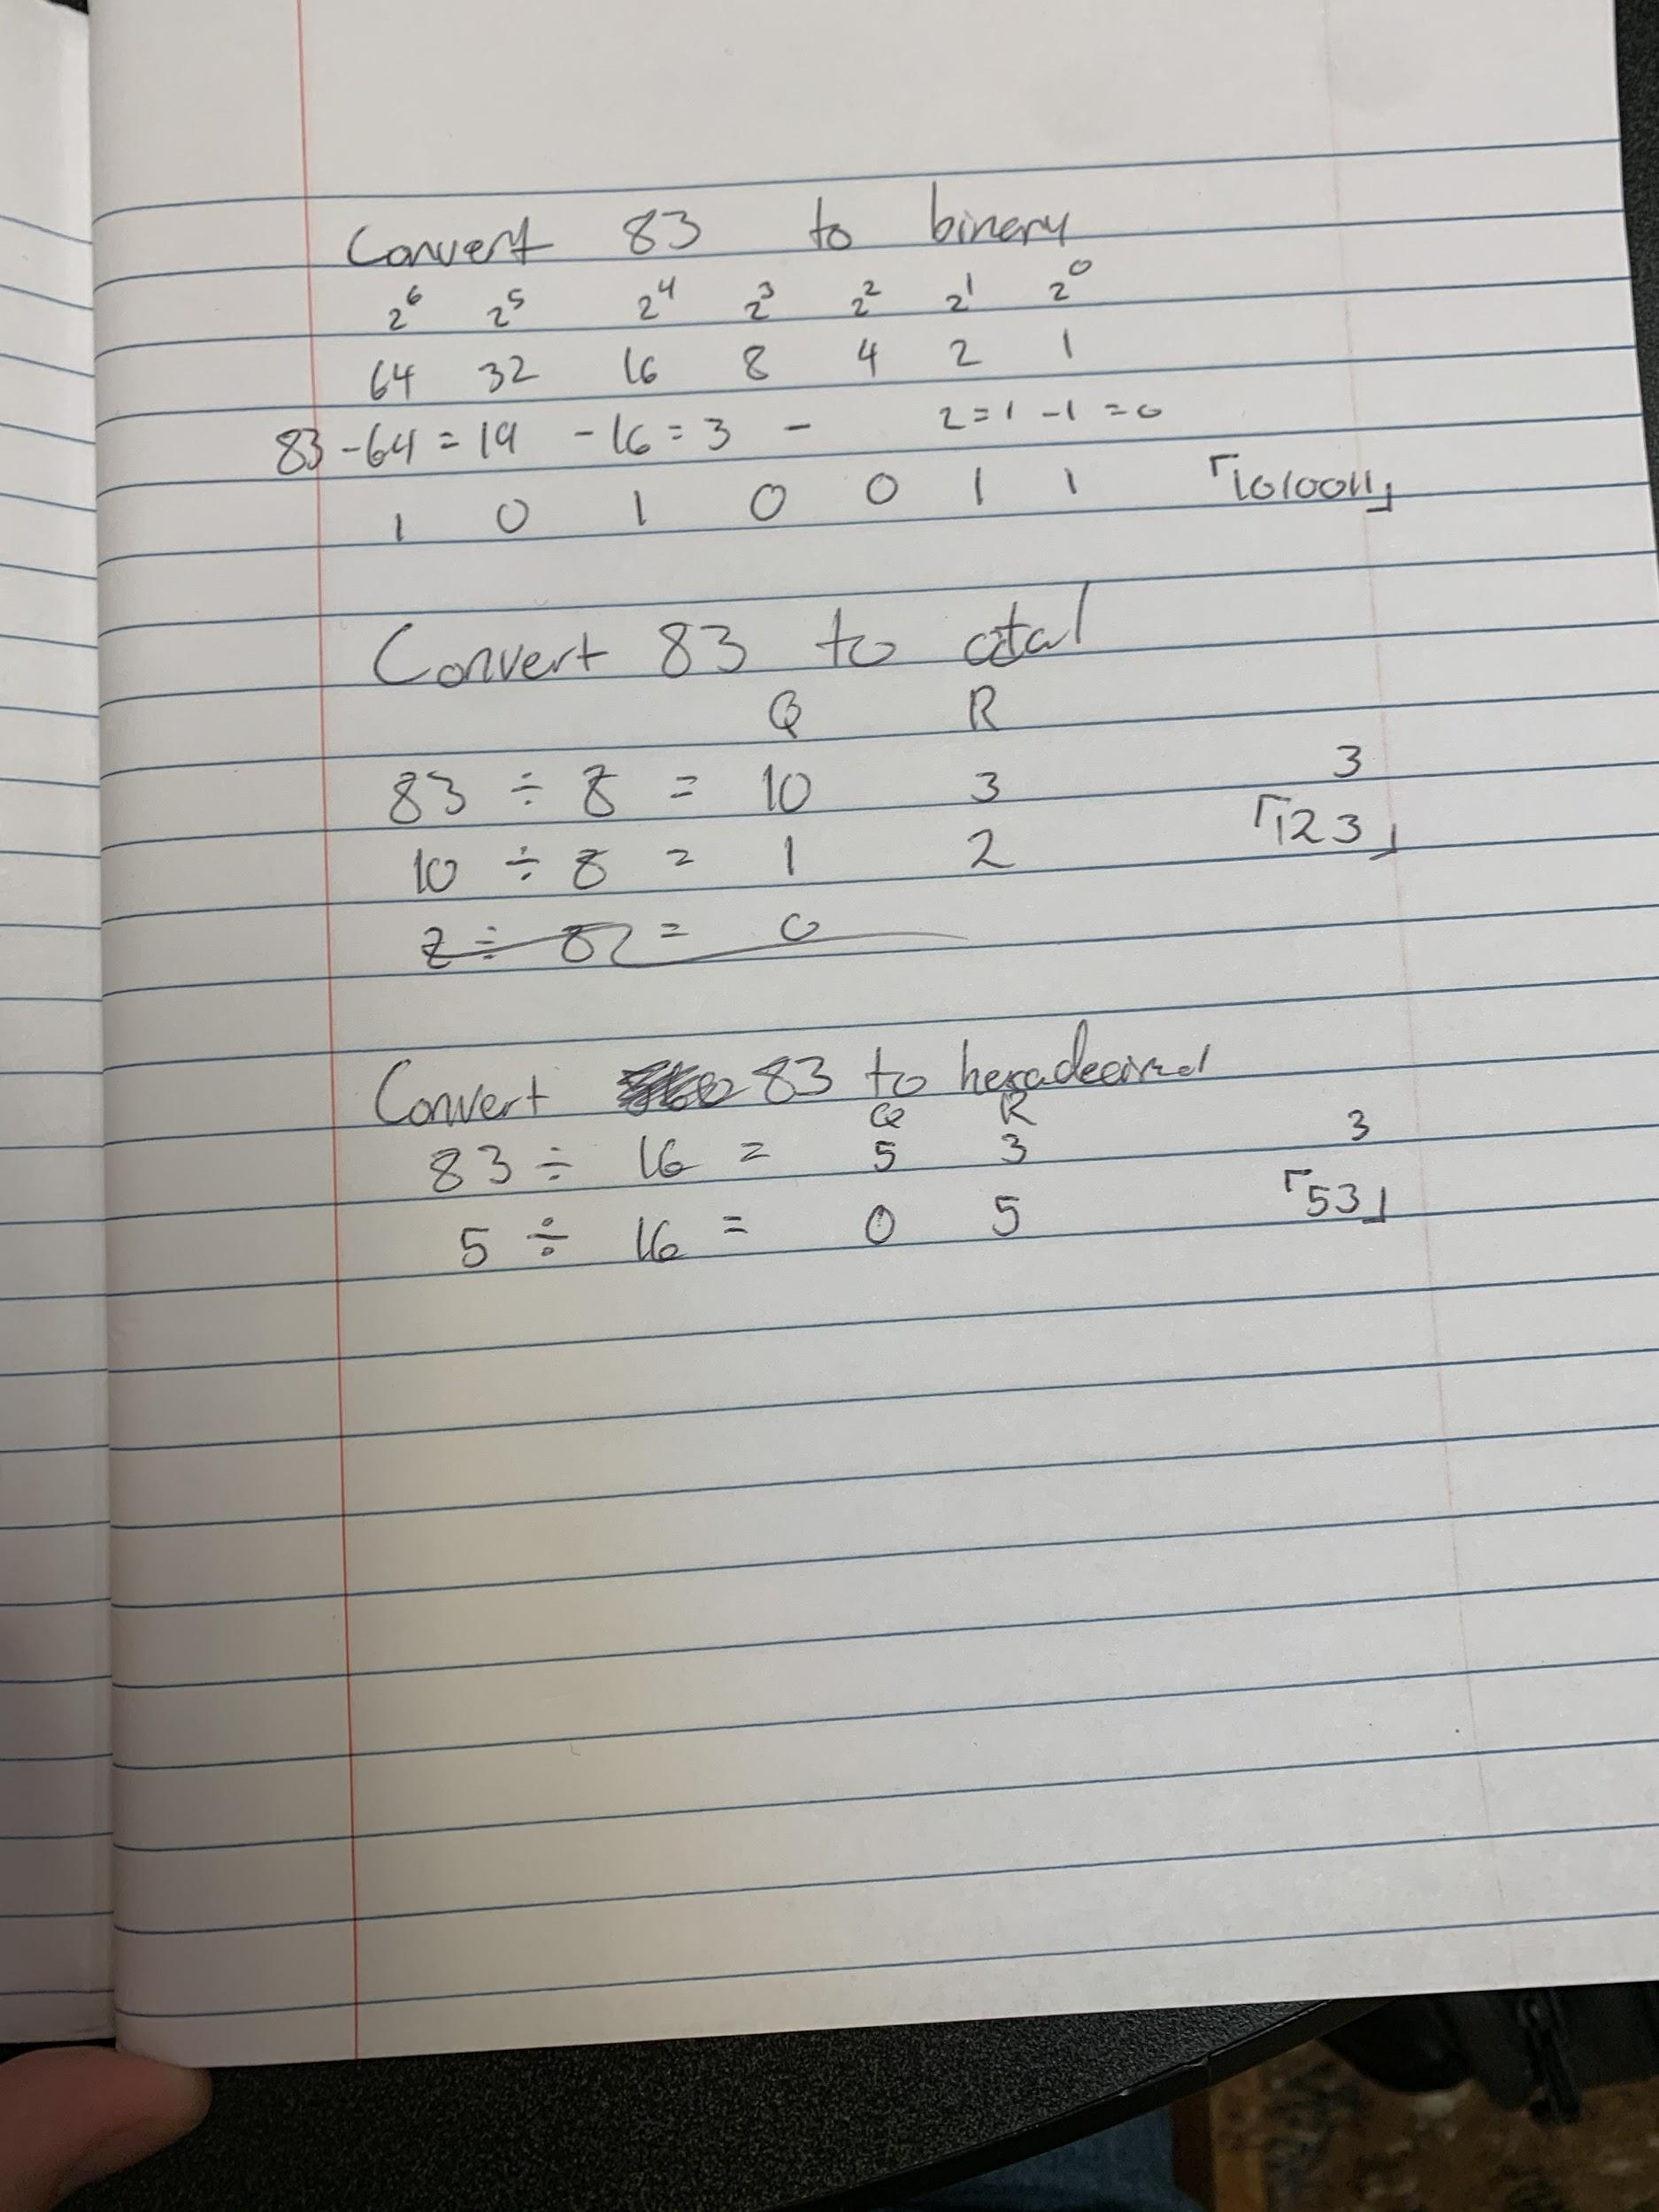 Convert 83 to binary
2^6 2^5 2^4 2^3 2^2 2^1 2^0
64 32 16 8 4 2 1
83 - 64 = 19 - 16 = 3 - 2 = 1 - 1 = 0
1 0 1 0 0 1 1 「1010011」
Convert 83 to octal
Q R
83 ÷ 8 = 10 3 3
10 ÷ 8 = 1 2 「123」
2 ÷ 8 = 0
Convert 83 to hexadecimal
Q R
83 ÷ 16 = 5 3 3
5 ÷ 16 = 0 5 「53」